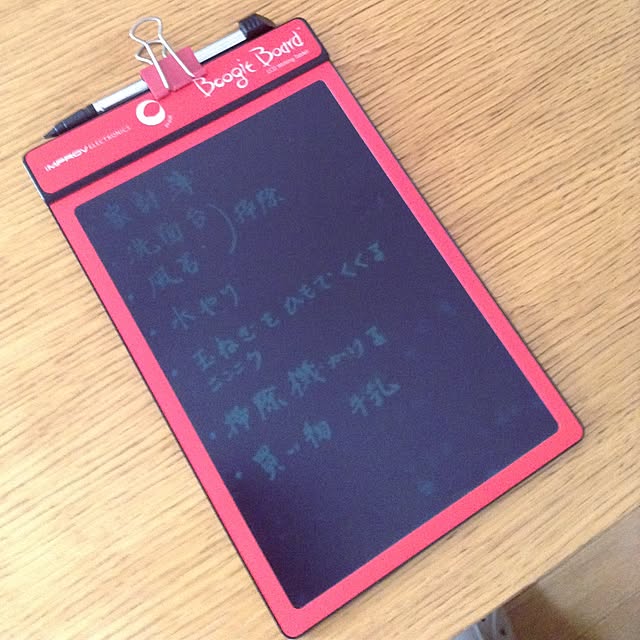 Boogie Board™
LCD Writing Tablet
IMPROV ELECTRONICS
家計簿
・洗面台
・風呂 掃除
・水やり
・玉ねぎをひもでくくる
ニンニク
・掃除機かける
・買い物 牛乳